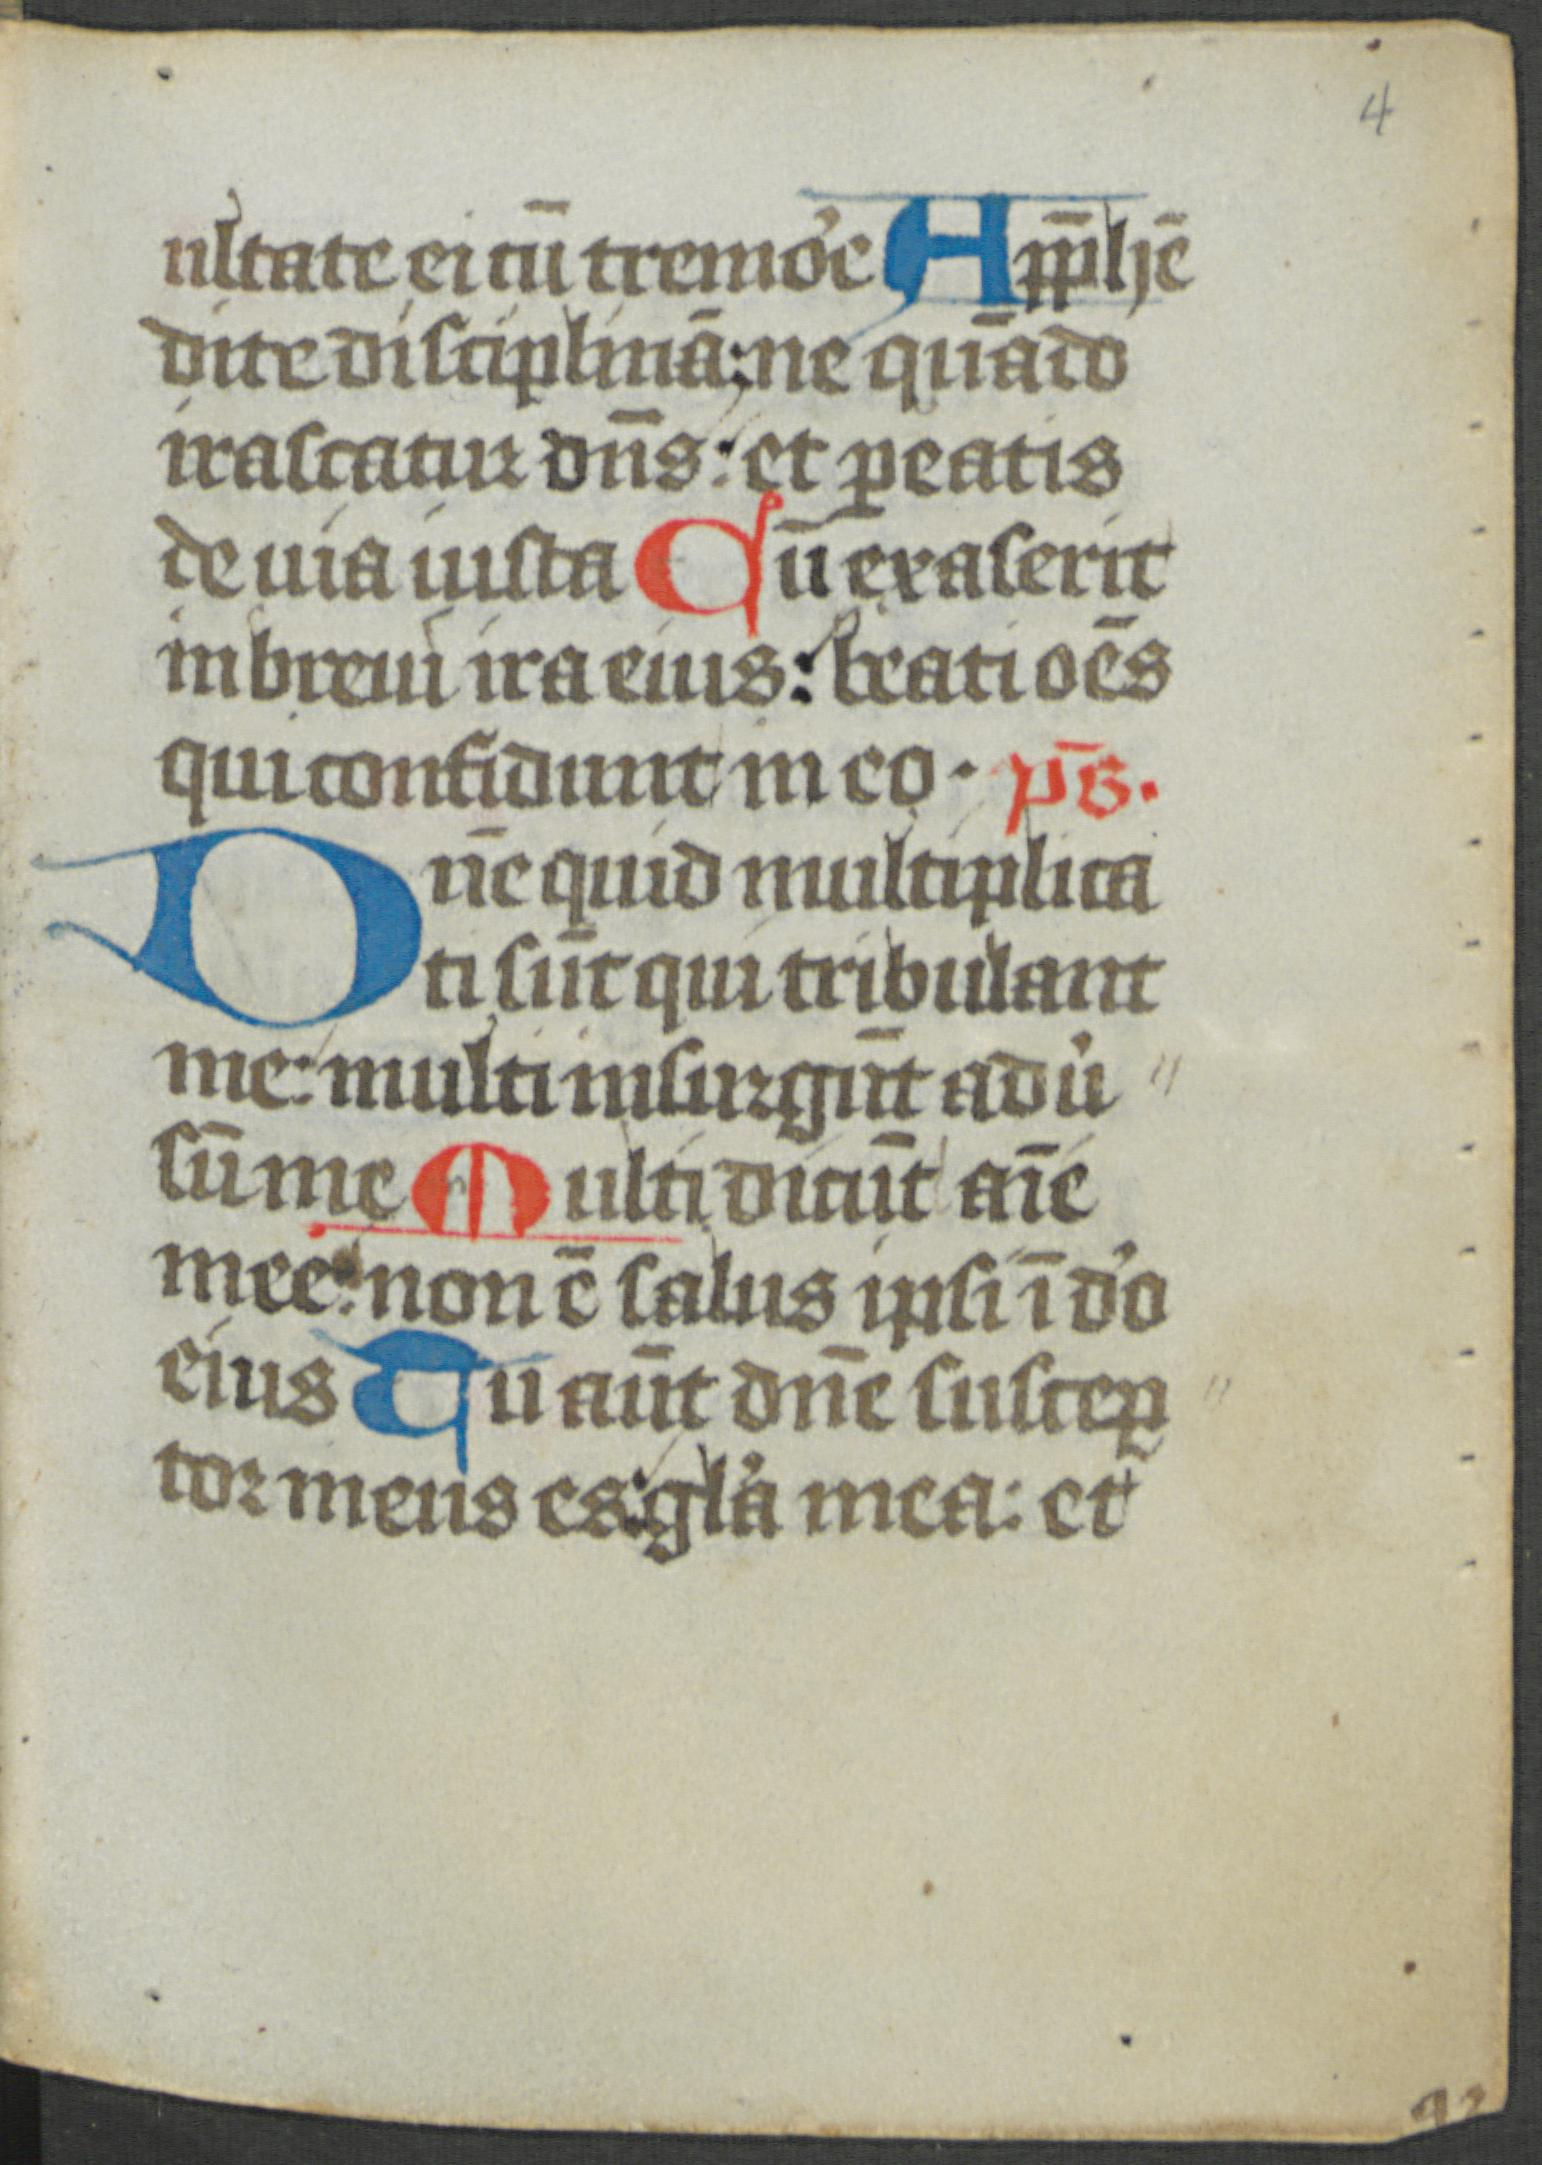 4
ultate ei cū tremoʼe App̄hē
dite disciplinā: ne quādo
irascatur dn̄s: et ꝑeatis
de uia iusta Cū exaserit
in breui ira eius: beati oēs
qui confidunt in eo. pȳs.
Dn̄e quid multiplica
ti sūt qui tribulant
me: multi insurgūt aduʼ
sū me Multi dicūt aīe
mee: non ē salus ipsi ī dʼo
eius Tu aūt dn̄e suscep
tor meus es: glʼa mea: et